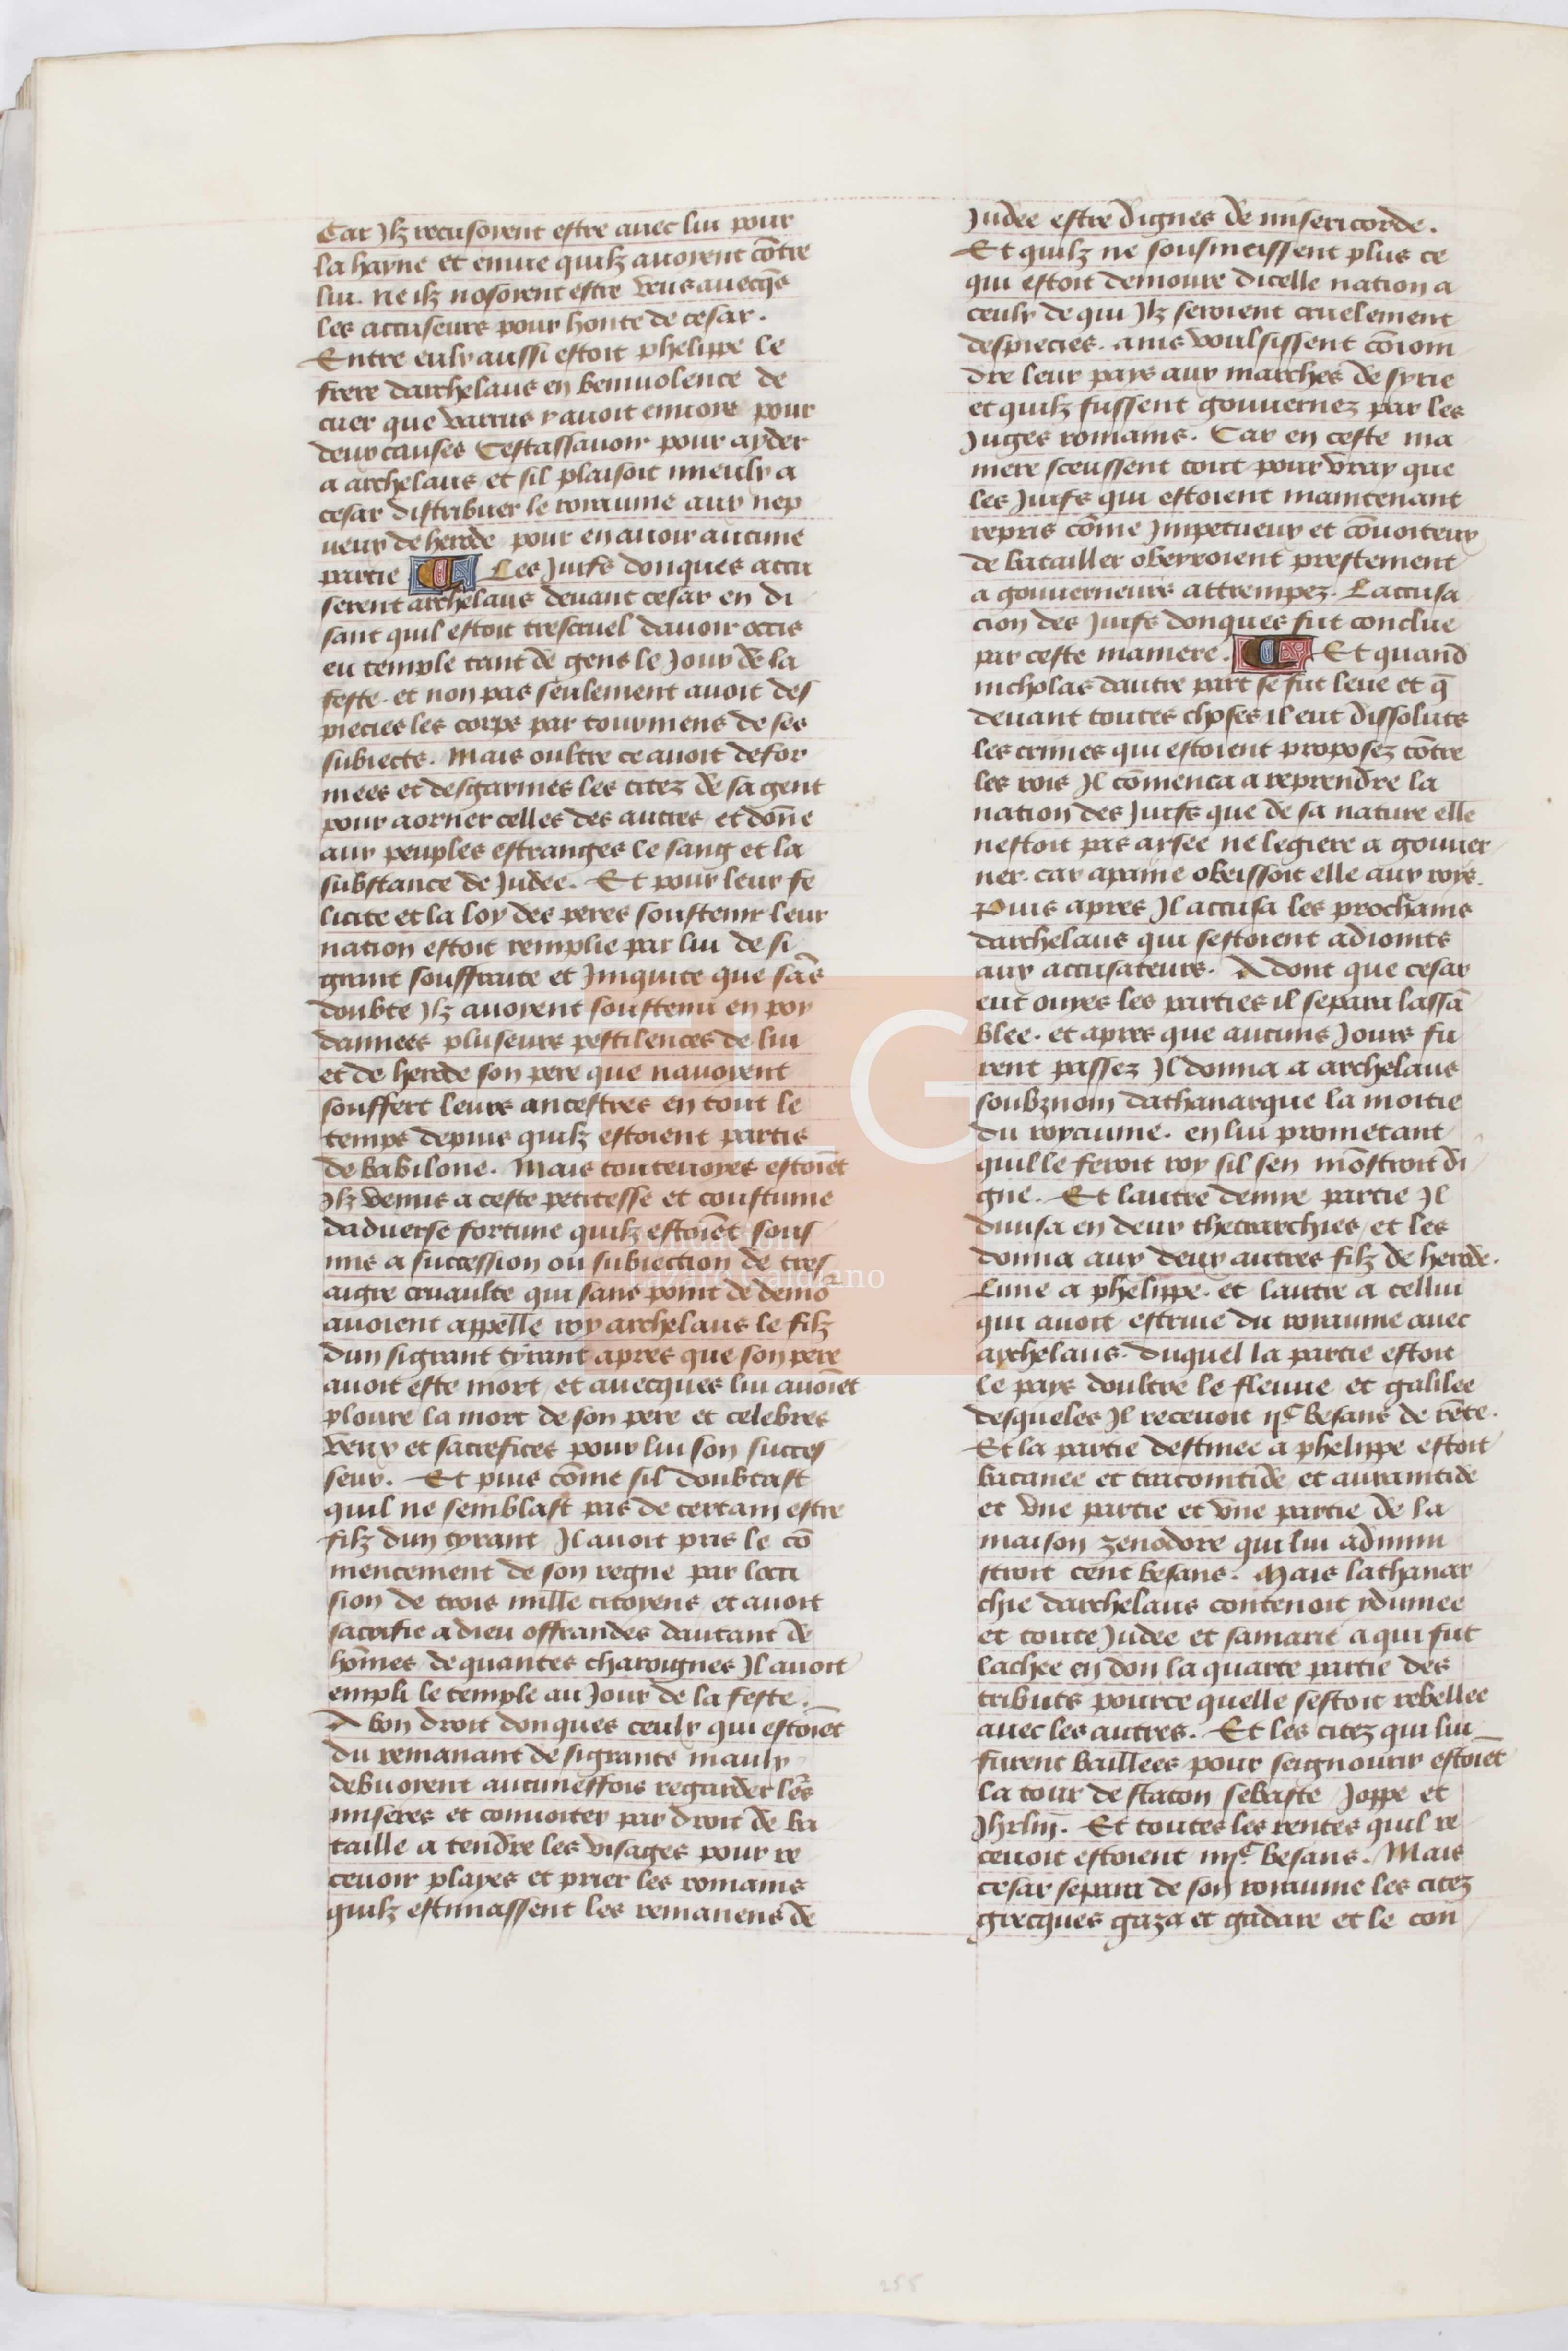 Car Ilz recusoient estre auec lui pour
la hayne et enuie quilz auoient cōtre
lui. ne ilz nosoient estre veus auecqs̄
les accuseurs pour honte de cesar.
Entre eulx aussi estoit phelippe le
frere darchelaus en beniuolence de
cuer que varrus y auoit enuoie pour
deux causes Cestassauoir pour ayder
a archelaus et sil plaisoit mieulx a
cesar distribuer le roiaume aux nep
ueux de herode pour en auoir aucune
partie Les Juifs donques accu
serent archelaus deuant cesar en di
sant quil estoit trescruel dauoir occis
eu temple tant de gens le Jour de la
feste. et non pas seulement auoit des
pieciez les corps par tourmens de ses
subiects. Mais oultre ce auoit defor
mees et desgarnies les citez de sa gent
pour aorner celles des autres et dōne
aux peuples estranges le sang et la
substance de Judee. Et pour leur fe
licite et la loy des peres soustenir leur
nation estoit remplie par lui de si
grant souffraite et Iniquite que sās
doubte Ilz auoient soustenu en poy
dannees pluseurs pestilences de lui
et de herode son pere que nauoient
souffert leurs ancestres en tout le
temps depuis quilz estoient partis
de babilone. Mais toutesuoyes estoiēt
Ilz venus a ceste petitesse et coustume
daduerse fortune quilz estoiēt sous
mis a succession ou subiection de tres
aigre cruaulte qui sans point de demo
auoient appelle roy archelaus le filz
dun sigrant tyrant apres que son pere
auoit este mort et auecques lui auoiēt
ploure la mort de son pere et celebres
veux et sacrefices pour lui son succes
seur. Et puis cōme sil doubtast
quil ne semblast pas de certain estre
filz dun tyrant Il auoit pris le cō
mencement de son regne par locci
sion de trois mille citoyens et auoit
sacrifie a dieu offrandes dautant de
hōmes de quantes charoignes Il auoit
empli le temple au Jour de la feste.
A bon droit donques ceulx qui estoiēt
du remanant de sigrants maulx
debuoient aucuneffois regarder lēs
miseres et conuoiter par droit de ba
taille a tendre les visages pour re
ceuoir playes et prier les romains
quilz estimassent les remanens de
Judee estre dignes de misericorde.
Et quilz ne sousmeissent plus ce
qui estoit demoure dicelle nation a
ceulx de qui Ilz seroient cruelement
despieciez. ains voulsissent cōioin
dre leur pays aux marches de syrie
et quilz fussent gouuernez par les
Juges romains. Car en ceste ma
niere sceussent tout pour vray que
les Juifs qui estoient maintenant
repris cōme Impetueux et cōuoiteux
de batailler obeyroient prestement
a gouuerneurs attrempez. Laccusa
cion des Juifs donques fut conclue
par ceste maniere. Et quand
nicholas dautre part se fut leue et q̄
deuant toutes choses il eut dissoluts
les crimes qui estoient proposez cōtre
les rois Il cōmenca a reprendre la
nation des Juifs que de sa nature elle
nestoit pas aysee ne legiere a gouuer
ner. car apaine obeissoit elle aux roys.
Puis apres Il accusa les prochains
darchelaus qui sestoient adioints
aux accusateurs. Adont que cesar
eut ouyes les parties il separa lassā
blee. et apres que aucuns Jours fu
rent passez Il donna a archelaus
soubznom dathanarque la moitie
du royaume. en lui prometant
quil le feroit roy sil sen mōstroit di
gne. Et lautre demie partie Il
diuisa en deux thetrarchies et les
donna aux deux autres filz de herode.
Lune a phelippe. et lautre a cellui
qui auoit estriue du roiaume auec
archelaus. duquel la partie estoit
le pays doultre le fleuue et galilee
desqueles Il receuoit IIc besans de rēte.
Et la partie destinee a phelippe estoit
batanee et tracontide et aurantide
et vne partie et vne partie de la
maison zenodore qui lui admini
stroit cent besans. Mais lathanar
chie darchelaus contenoit ydumee
et toute Judee et samarie a qui fut
lachee en don la quarte partie des
tributs pource quelle sestoit rebellee
auec les autres. Et les citez qui lui
furent baillees pour seignourir estoiēt
la tour de staton sebaste Joppe et
Jhrlm̄. Et toutes les rentes quil re
ceuoit estoient IIIIc besans. Mais
cesar separa de son roiaume les citez
grecques gaza et gadare et le con
FLG
Fundación
Lázaro Galdiano
258